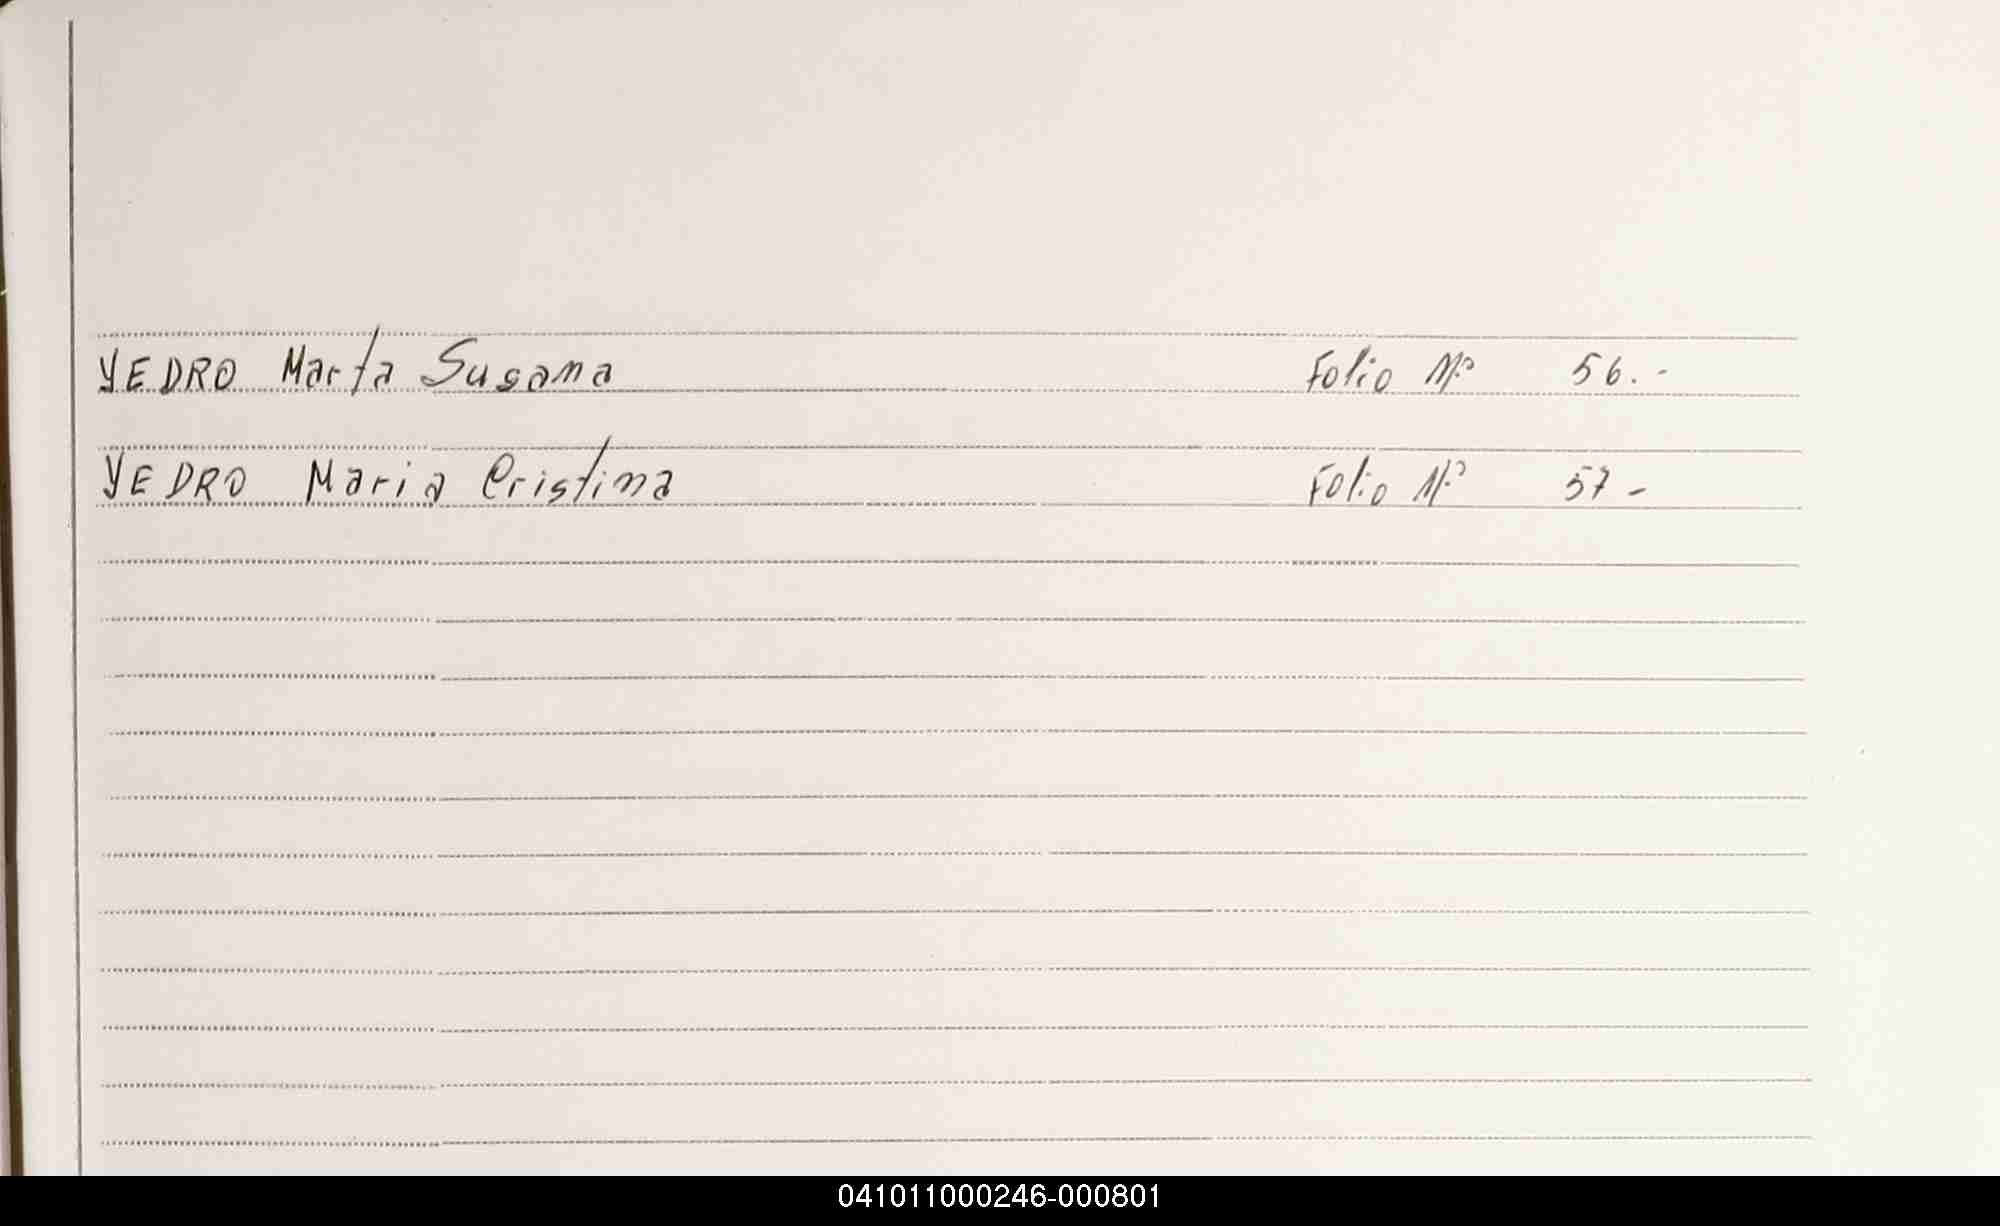 YEDRO Marta Susana Folio Nº 56.-
YEDRO Maria Cristina Folio Nº 57-
041011000246-000801